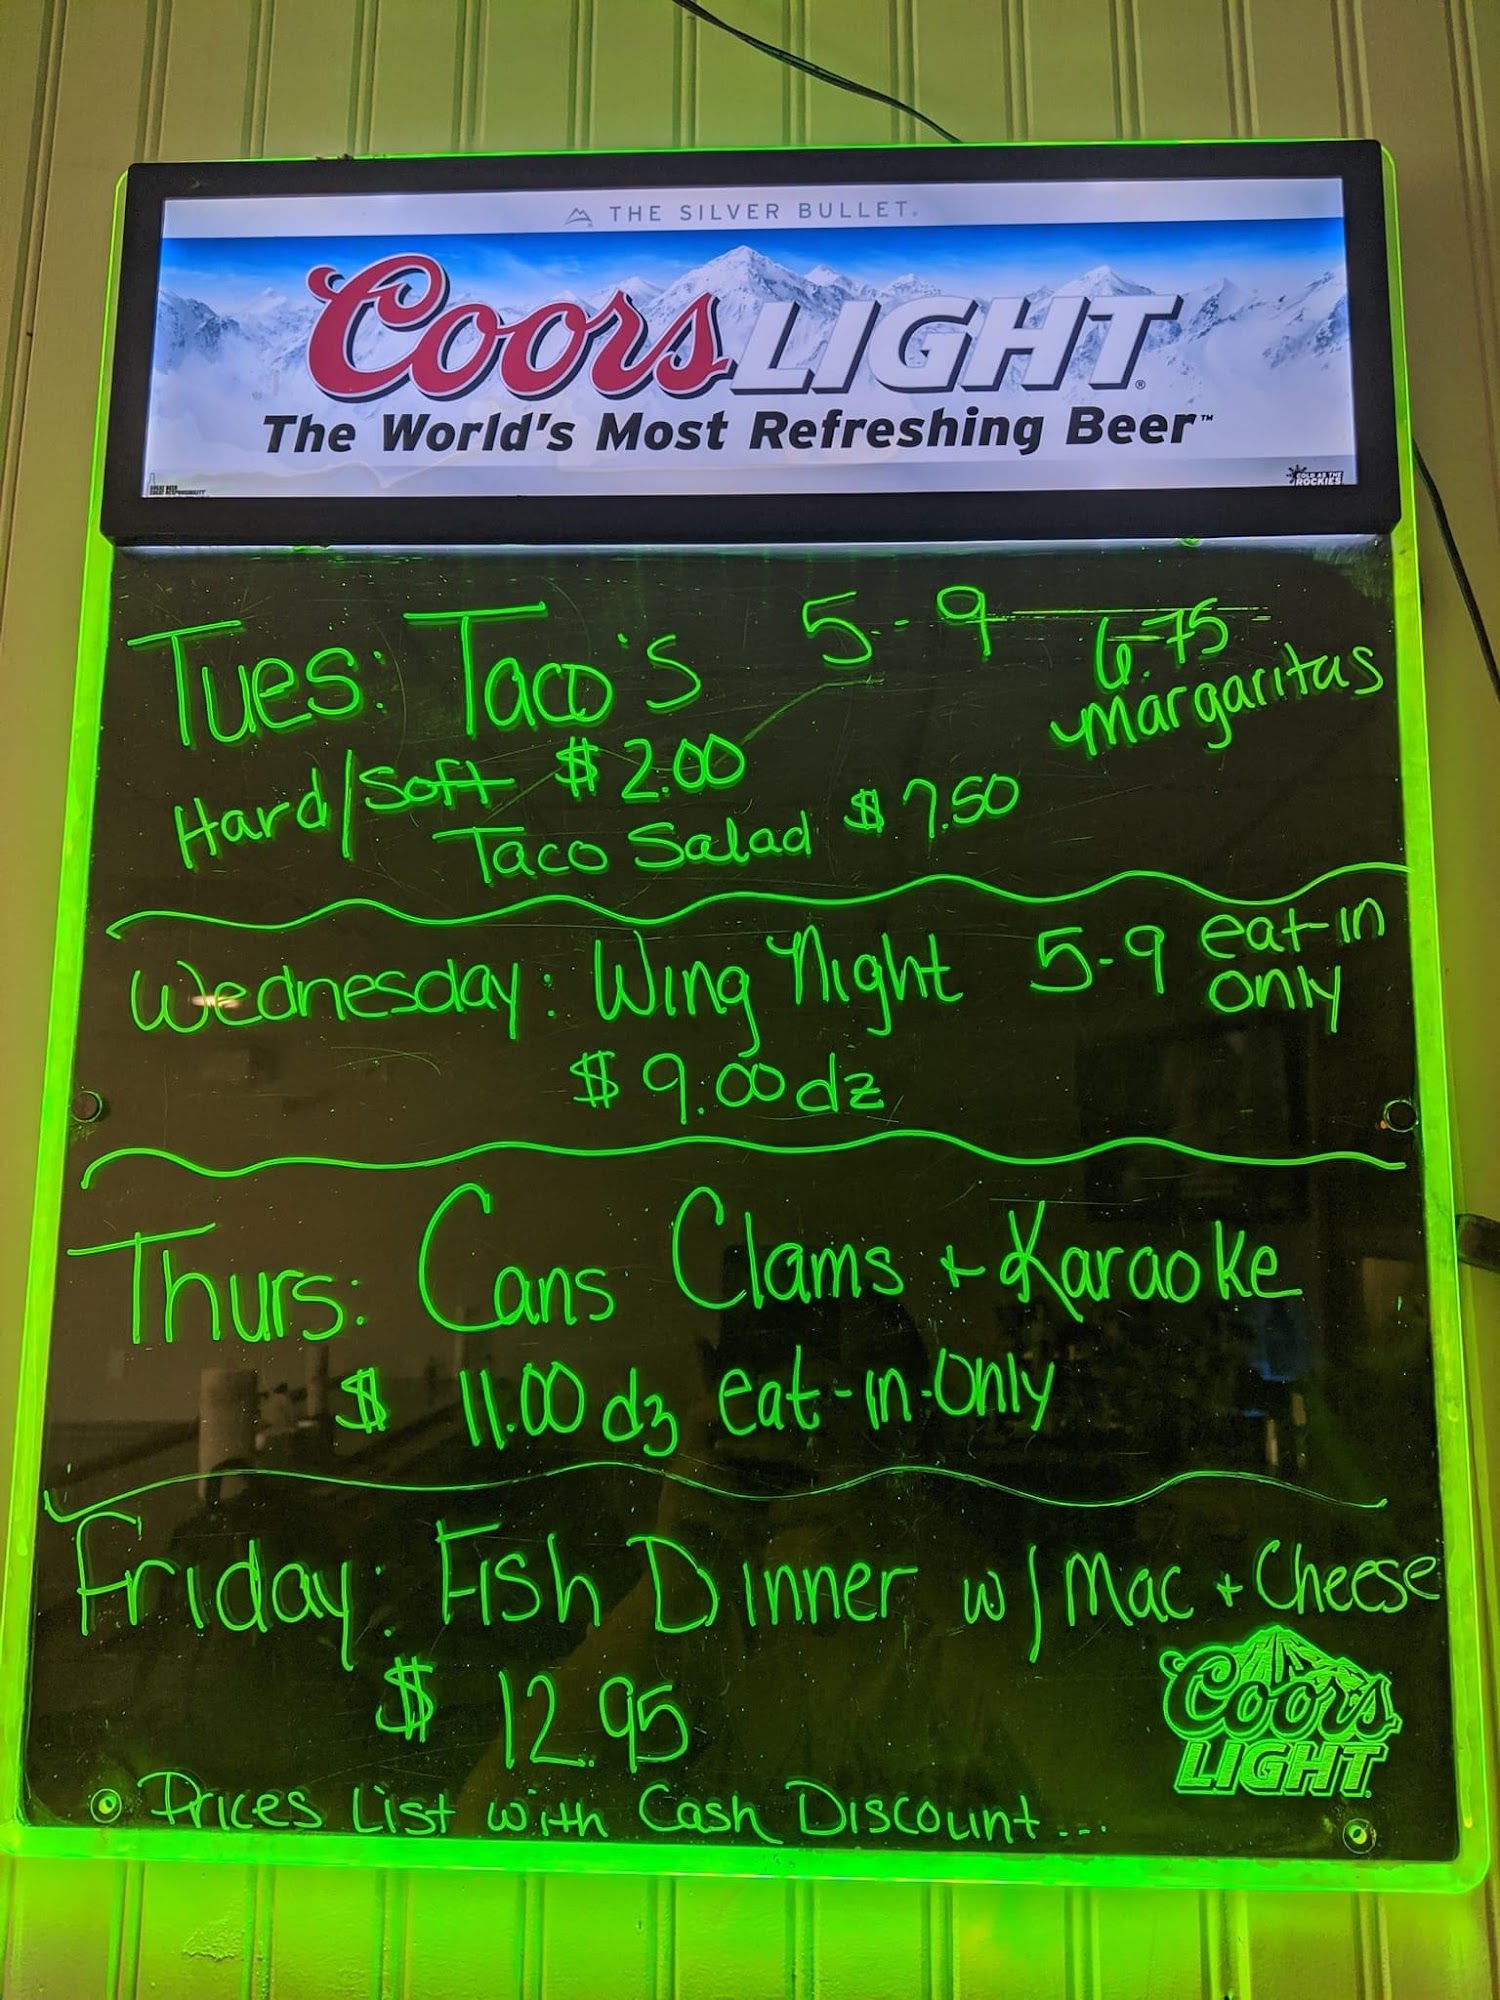 THE SILVER BULLET.
Coors LIGHT®
The World's Most Refreshing Beer™
COLD AS THE
ROCKIES
Tues: Taco's 5-9 6.75
Margaritas
Hard/Soft $2.00
Taco Salad $7.50
Wednesday: Wing Night 5-9 eat-in
only
$9.00 dz
Thurs: Cans Clams + Karaoke
$11.00 dz eat-in-Only
Friday: Fish Dinner w/ Mac + Cheese
$12.95
Coors
LIGHT
Prices List with Cash Discount...